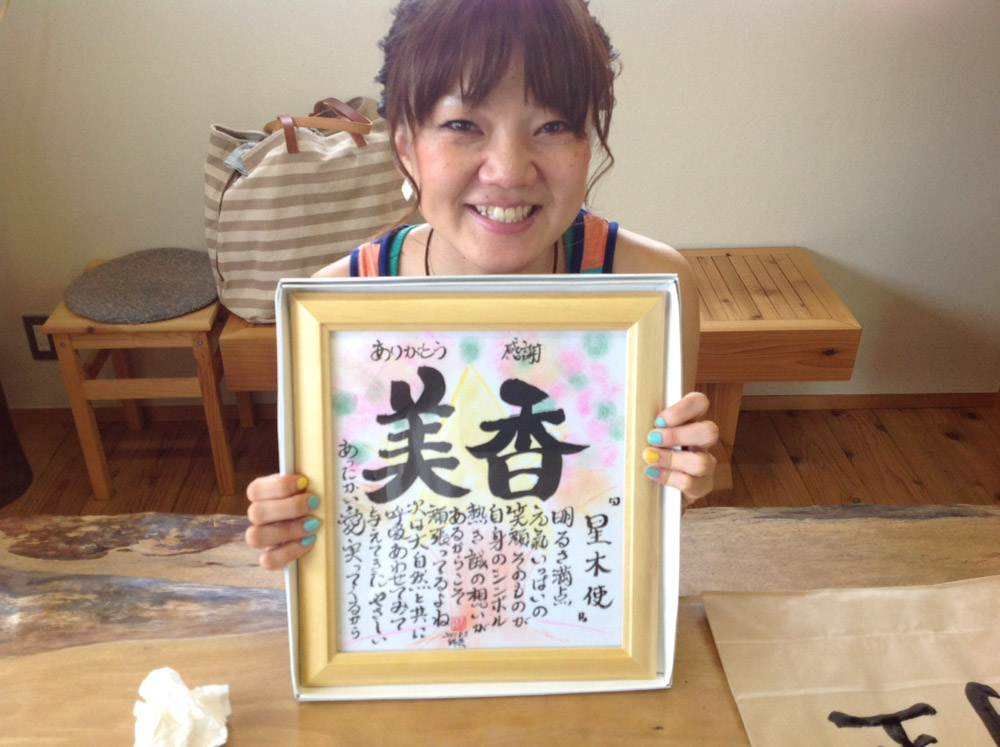 ありがとう 感謝
美香
星木使
明るさ満点
元氣いっぱいの
笑顔そのものが
自身のシンボル
熱き誠の想いが
あるからこそ
頑張ってるよね
次は大自然と共に
呼吸あわせてみて
与えてきたやさしい
あったかい愛実ってくるから